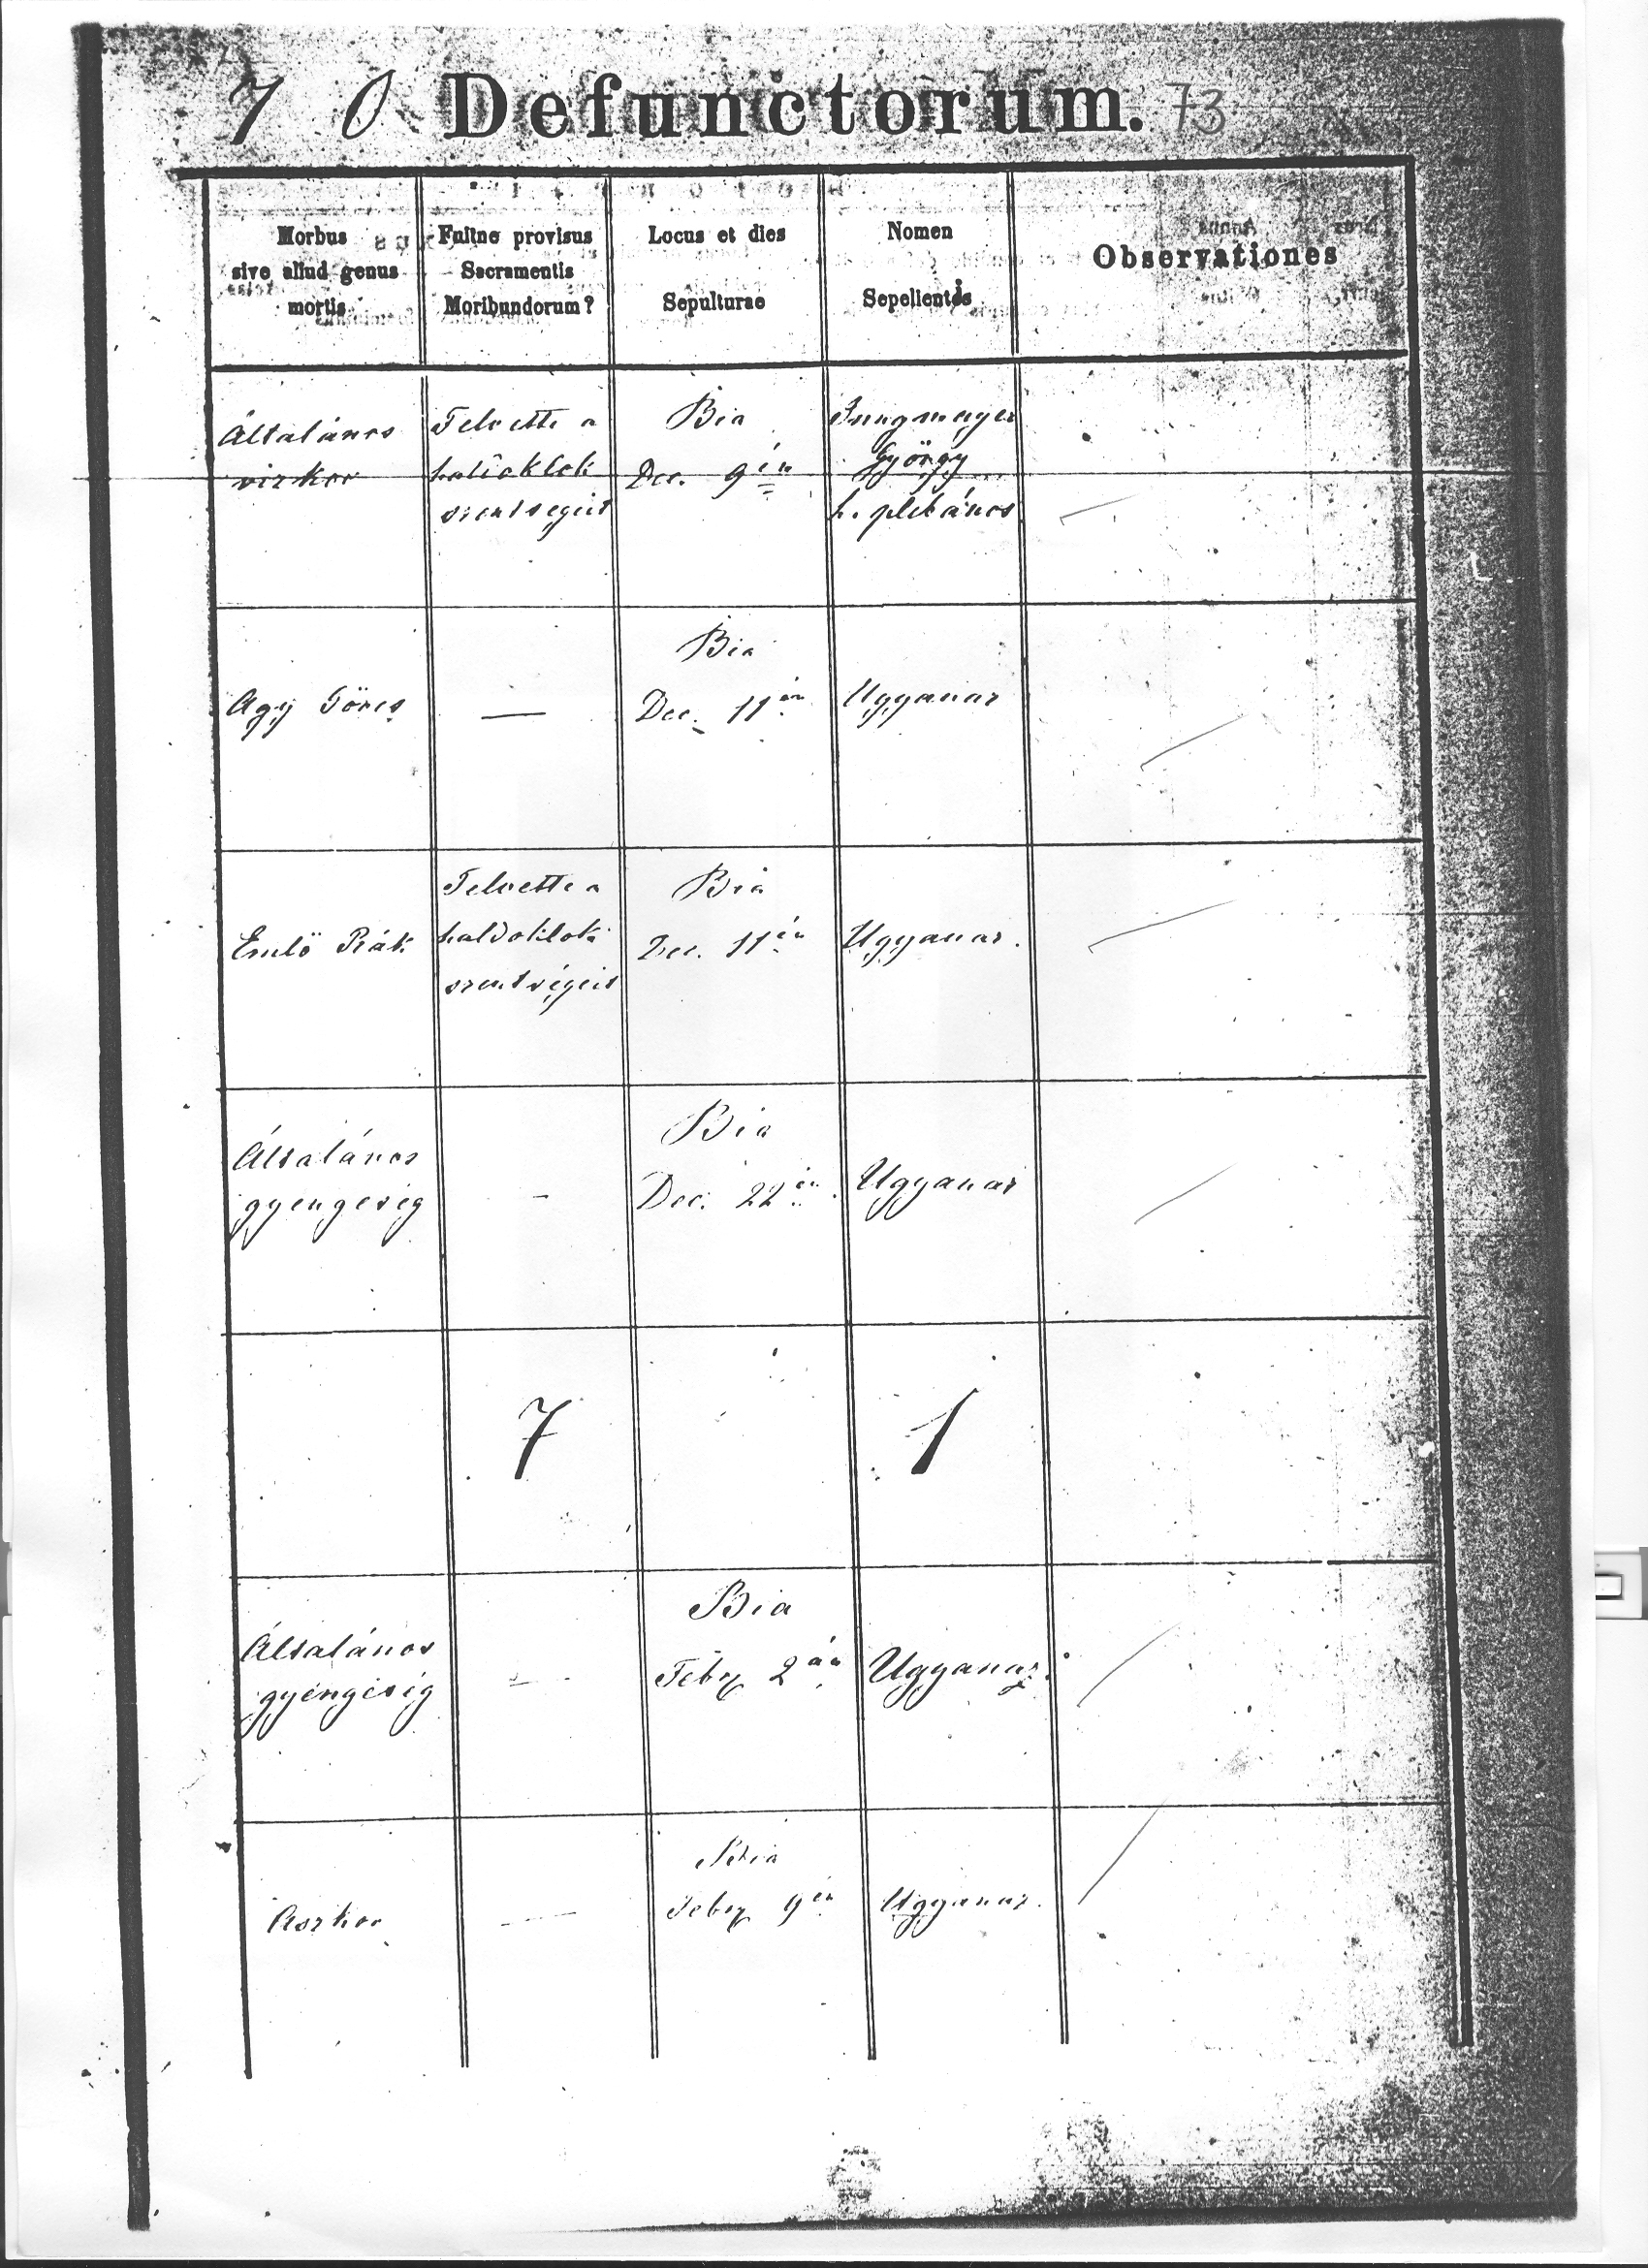 7 0 Defunctorum. 73
Morbus
sive aliud genus
mortis
Fuitne provisus
Sacramentis
Moribundorum?
Locus et dies
Sepulturae
Nomen
Sepelientis
Observationes
Általános
vizkor
Felvette a
haldoklók
szentségeit
Bia
Dec. 9én
Jungmayer
György
h. plébános
Agy Görcs
—
Bia
Dec. 11én
Ugyanaz
Emlö Rák
Felvette a
haldoklók
szentségeit
Bia
Dec. 11én
Ugyanaz.
Általános
gyengeség
-
Bia
Dec. 22én.
Ugyanaz
7
1
Általános
gyengeség
—
Bia
Febr 2án
Ugyanaz.
Aszkor
—
Bia
Febr 9én
Ugyanaz.